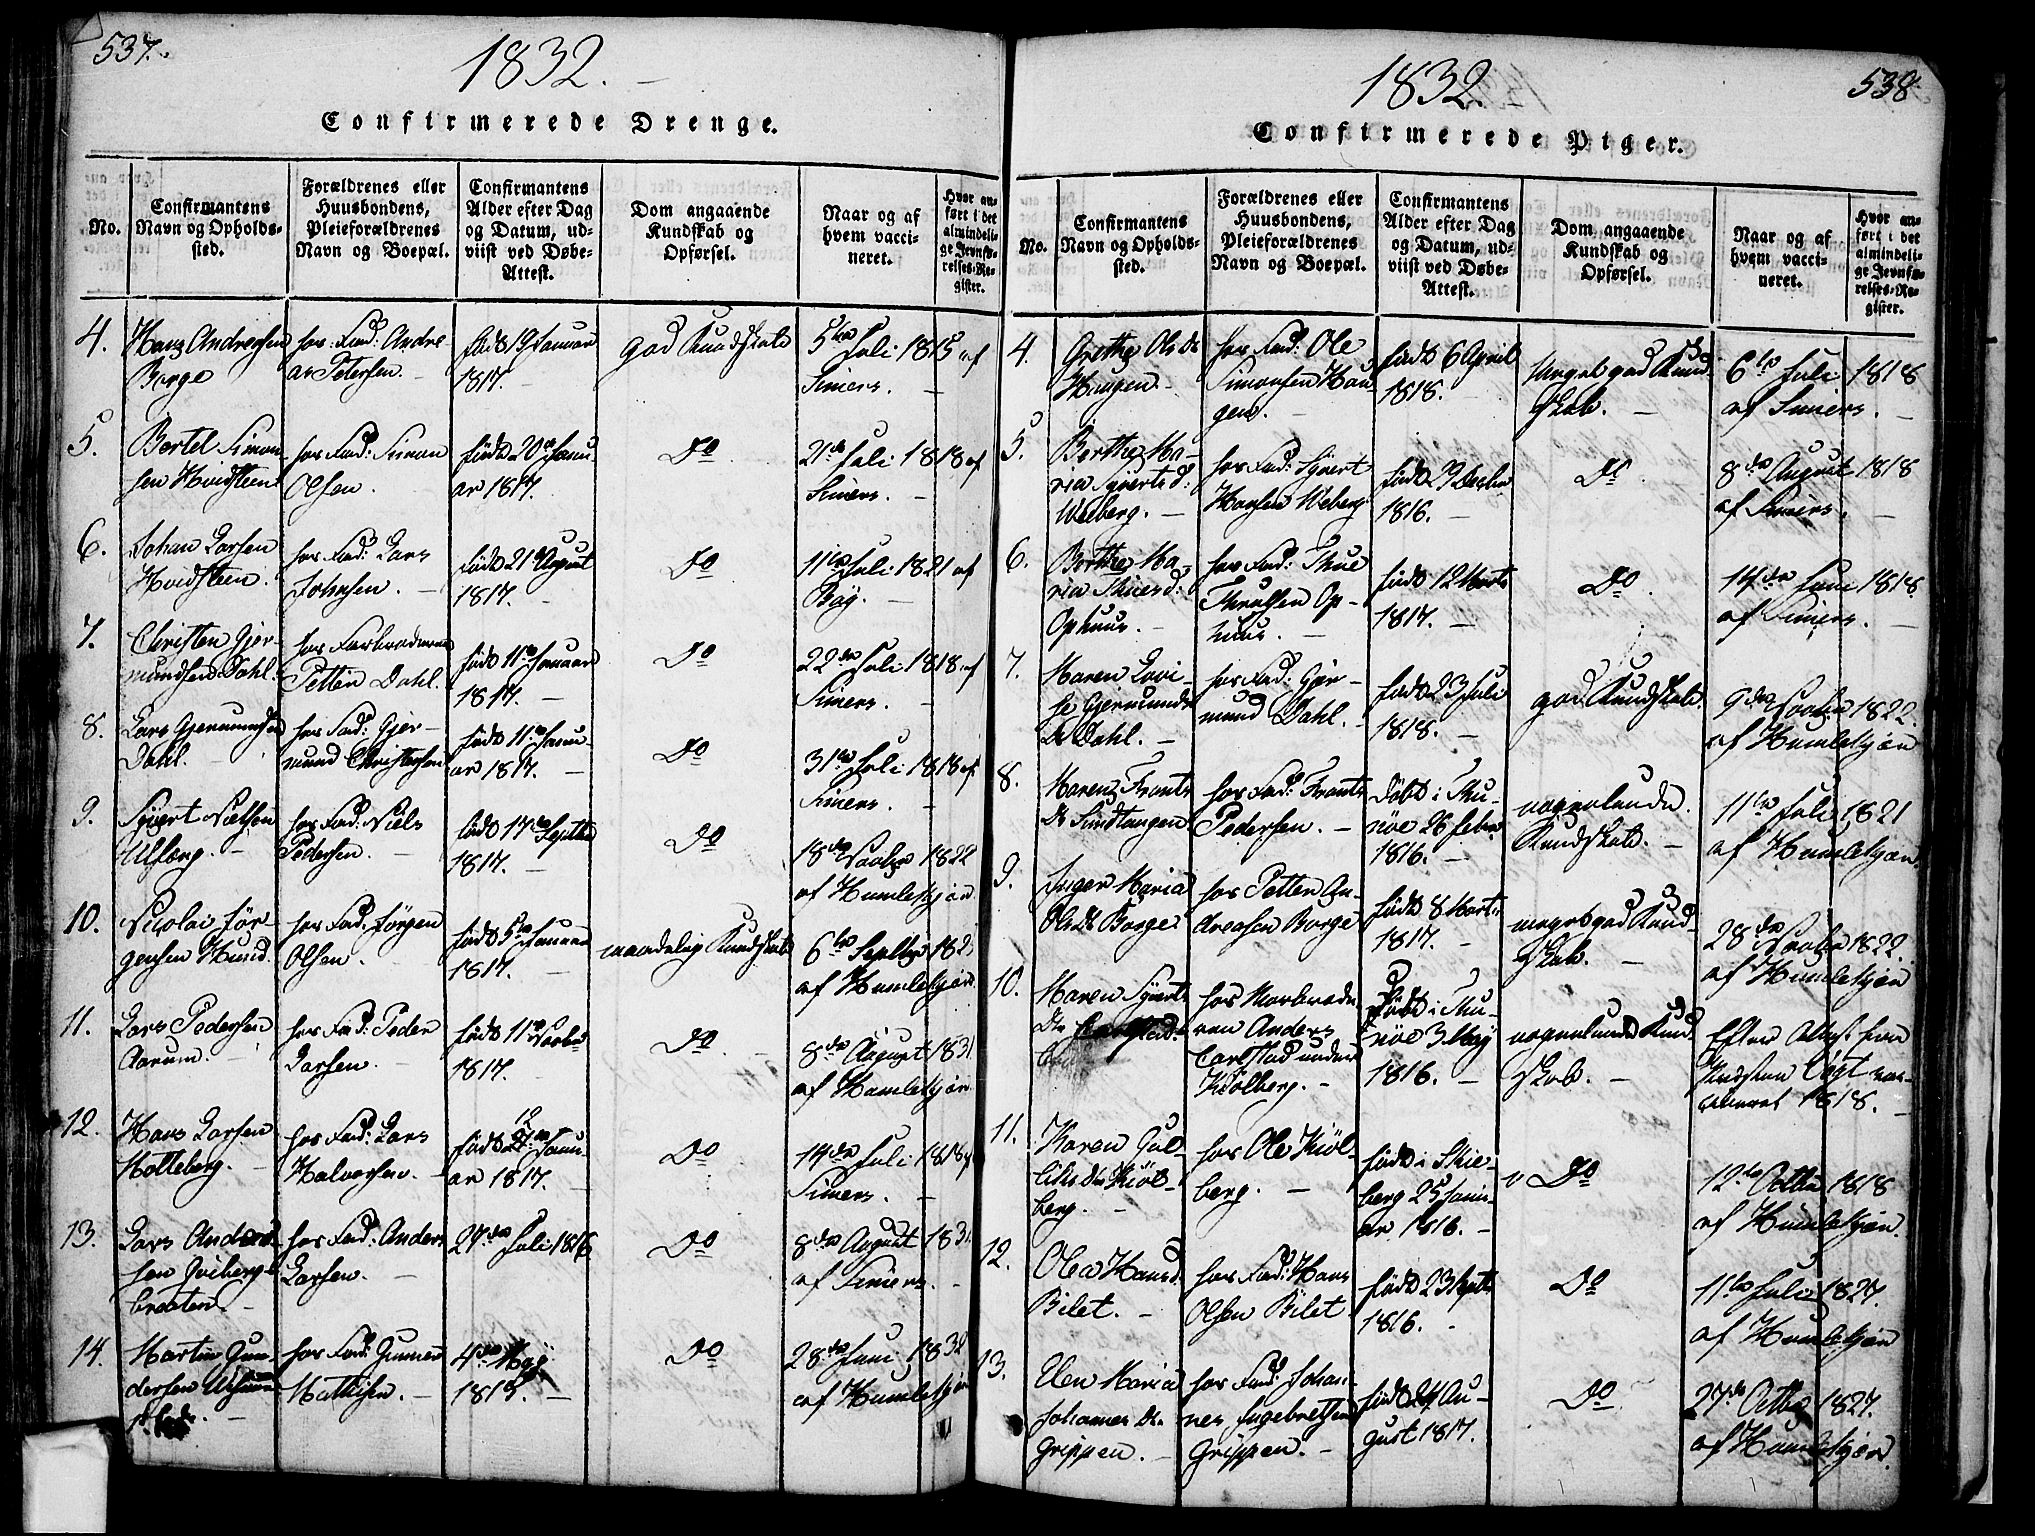 537.
1832.
Confirmerede Drenge.
No.
Confirmantens
Navn og Opholds-
sted.
Forældrenes eller
Huusbondens,
Pleieforældrenes
Navn og Boepæl.
Confirmantens
Alder efter Dag
og Datum, ud-
viist ved Døbe-
Attest.
Dom angaaende
Kundskab og
Opførsel.
Naar og af
hvem vacci-
neret.
Hvor an-
ført i det
almindeli-
ge Jevnfø-
relses-Re-
gister.
4.
Hans Andresen
Borge
hos Fad: Andre
as Petersen.
født 19 Januar
1817.
god Kundskab
5te Juli 1815 af
Simers.
5.
Bertel Simon-
sen Hvidsteen
hos Fad: Simon
Olsen.
født 20de Janu
ar 1817.
Do
21de Juli 1818 af
Simers.
6.
Johan Larsen
Hvidsteen.
hos Fad: Lars
Johnsen.
født 21 August
1817.
Do
11te Juli 1821 af
Bøÿ.
7.
Christen Gjer-
mundsen Dahl.
hos Farbroderen
Petter Dahl.
født 11te Januar
1817.
Do
22de Juli 1818 af
Simers.
8.
Lars Gjermundsen
Dahl.
hos Fad: Gjer-
mund Christensen
født 11te Janu-
ar 1817.
Do
31te Juli 1818 af
Simers.
9.
Syvert Nielsen
Ulfeng.
hos Fad: Niels
Pedersen.
født 17de Septbr
1817.
Do
18de Novbr 1822
af Humlekjær
10.
Nicolai Jør-
gensen Hund.
hos Fad: Jørgen
Olsen.
født 5te Januar
1817.
maadelig Kundskab
6te Septbr 182
af Humlekjær
11.
Lars Pedersen
Aarum.
hos Fad: Peder
Larsen.
født 11te Novbr
1817.
Do
8de August 1831
af Humlekjær
12.
Hans Larsen
Holleberg.
hos Fad: Lars
Halvorsen.
født 12 Janu-
ar 1817.
Do
14de Juli 1818 af
Simers.
13.
Lars Anders-
sen Qviberg-
braaten.
hos Fad: Anders
Larsen.
27de Juli 1816
Do
8de August 1831
af Simers.
14.
Martin Gun-
dersen
hos Fad: Gunner
Mathisen.
4de Maÿ
1815.
Do
28de Juni 1832
af Humlekjær
538
1832.
Confirmerede Piger.
No.
Confirmantens
Navn og Opholds-
sted.
Forældrenes eller
Huusbondens,
Pleieforældrenes
Navn og Boepæl.
Confirmantens
Alder efter Dag
og Datum, ud-
viist ved Døbe-
Attest.
Dom angaaende
Kundskab og
Opførsel.
Naar og af
hvem vacci-
neret.
Hvor an-
ført i det
almindeli-
ge Jevnfø-
relses-Re-
gister.
4.
Grethe Ols Dr
Haugen.
hos Fad: Ole
Simonsen Hau
gen.
født 6 April
1818.
Meget god Kund-
skab.
6te Juli 1818
af Simers.
5.
Berthe Ma-
ria Syverts d:
Weberg.
hos Fad: Syvert
Hansen Weberg
født 29 Decbr
1816.
Do
8de August 1818
af Simers.
6.
Berthe Ma-
ria Thues d:
Ophuus.
hos Fad: Thue
Thrulsen Op-
huus.
født 12 Marts
1817.
Do
14de Juni 1818.
af Simers.
7.
Maren Lovi-
se Gjermunds
Dr Dahl.
hos Fad: Gjer-
mund Dahl.
født 23 Juli
1818.
god Kundskab.
9de Novbr 1822.
af Humlekjær
8.
Maren Frants
Dr Sundtangen
hos Fad: Frants
Pedersen.
Døbt i Thu-
nøe 26 Febr
1816.
nogenlunde
Kundskab.
11te Juli 1821
af Humlekjær
9.
Inger Maria
Ols Dr Borge
hos Petter An-
dreasen Borge
født 8 Marts
1817.
meget god Kund-
skab.
28de Novbr 1822.
af Humlekjær
10.
Maren Syverts
Dr
hos Morbrode-
ren Anders
Carlstad under
Kiølberg.
født i Thu-
nøe 3 Maÿ
1816.
nogenlunde Kund
skab.
Efter Attest fra
Vogt vac-
cineret 1818.
11.
Karen Gul-
liks Dr Kiøl-
berg.
hos Ole Kiøl-
berg.
født i Skie-
berg 25 Janu-
ar 1816.
Do
12te Octbr 1818
af Humlekjær.
12.
Olea Hansd.
Bilet.
hos Fad: Hans
Olsen Bilet
født 23 Septbr
1816.
Do
11te Juli 1827.
af Humlekjær
13.
Elen Maria
Johannes Dr
Grippen.
hos Fad: Johan-
nes Ingebretsen
Grippen.
født 24 Au-
gust 1817.
Do
27de Octbr 1827.
af Humlekjær.